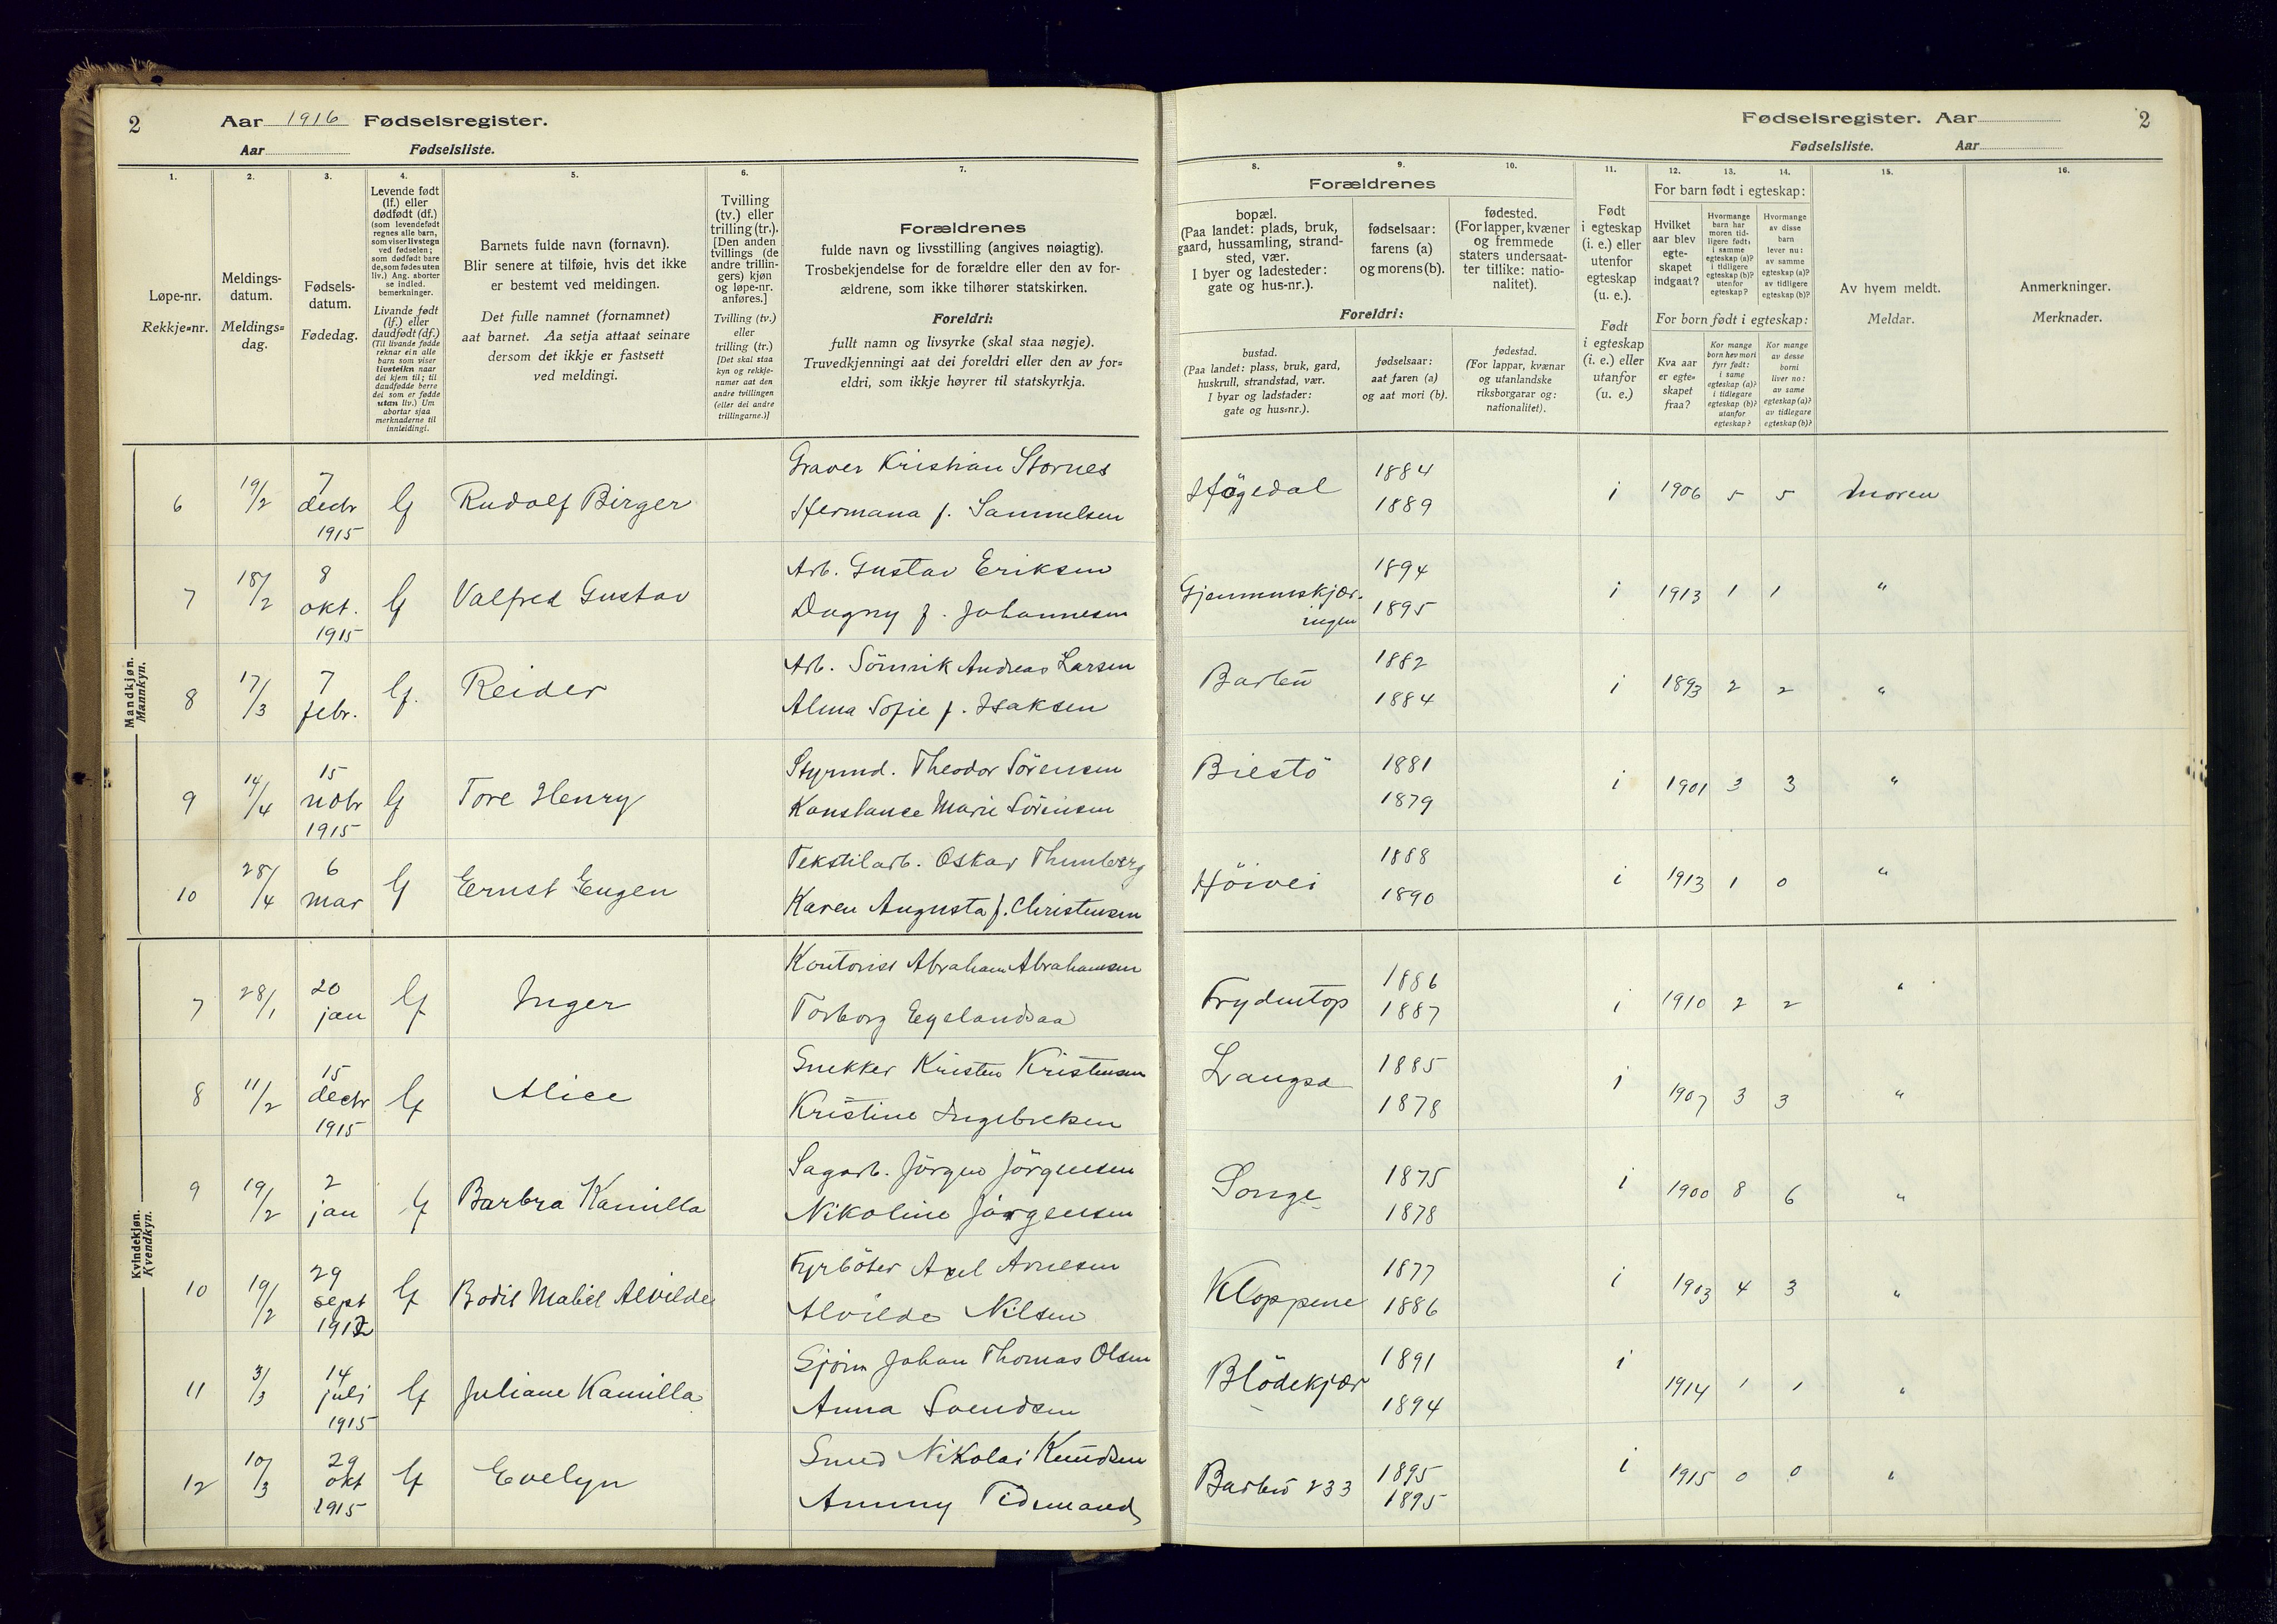 2
Aar 1916 Fødselsregister.
Aar Fødselsliste.
1.
2.
3.
4.
5.
6.
7.
Løpe-nr.
Rekkje-nr.
Meldings-
datum.
Meldings-
dag.
Fødsels-
datum.
Fødedag.
Levende født
(lf.) eller
dødfødt (df.)
(som levendefødt
regnes alle barn,
som viser livstegn
ved fødselen;
som dødfødt bare
de, som fødes uten
liv.) Ang. aborter
se indled.
bemerkninger.
Livande født
(lf.) eller
daudfødt (df.)
(Til livande fødde
reknar ein alle
barn som viser
livsteikn naar
dei kjem til; til
daudfødde berre
dei som er fødde
utan liv.) Um
abortar sjaa
merknaderne til
innleidingi.
Barnets fulde navn (fornavn).
Blir senere at tilføie, hvis det ikke
er bestemt ved meldingen.
Det fulle namnet (fornamnet)
aat barnet. Aa setja attaat seinare
dersom det ikkje er fastsett
ved meldingi.
Tvilling
(tv.) eller
trilling (tr.).
[Den anden
tvillings (de
andre trillin-
gers) kjøn
og løpe-nr.
anføres.]
Tvilling (tv.)
eller
trilling (tr.)
[Det skal staa
kyn og rekkje-
numer aat den
andre tvillingen
(eller dei andre
trillingarne.)]
Forældrenes
fulde navn og livsstilling (angives nøiagtig).
Trosbekjendelse for de forældre eller den av for-
ældrene, som ikke tilhører statskirken.
Foreldri:
fullt namn og livsyrke (skal staa nøgje).
Truvedkjenningi aat dei foreldri eller den av for-
eldri, som ikkje høyrer til statskyrkja.
Mandkjøn.
Mannkyn.
6 19/2 7 decbr 1915 lf Rudolf Birger
Graver Kristian Stornes
Hermana f. Samuelsen
7 18/2 8 okt. 1915 lf Valfred Gustav
Arb. Gustav Eriksen
Dagny f. Johannesen
8 17/3 7 febr. lf. Reider
Arb. Sönnik Andreas Larsen
Alma Sofie f. Isaksen
9 14/4 15 nobr 1915 lf Tore Henry
Styrmd. Theodor Sörensen
Konstanse Marie Sörensen
10 28/4 6 mar lf Ernst Eugen
Tekstilarb. Oskar Thunberg
Karen Augusta f. Christensen
Kvindekjøn.
Kvendkyn.
7 28/1 20 jan lf Inger
Kontorist Abraham Abrahamsen
Torborg Egelandsaa
8 11/2 15 decbr 1915 lf Alice
Snekker Kristen Kristensen
Kristine Ingebretsen
9 19/2 2 jan lf Barbra Kamilla
Sagarb. Jörgen Jörgensen
Nikoline Jörgensen
10 19/2 29 sept 1912 lf Bodil Mabel Alvilde
Fyrböter Axel Arnesen
Alvilde Nilsen
11 3/3 14 juli 1915 lf Juliane Kamilla
Sjöm Johan Thomas Olsen
Anna Svendsen
12 10/3 29 okt 1915 lf Evelyn
Smed Nikolai Knudsen
Ammy Tidemand
Fødselsregister. Aar 2
Fødselsliste. Aar
8.
9.
10.
11.
12.
13.
14.
15.
16.
Forældrenes
bopæl.
(Paa landet: plads, bruk,
gaard, hussamling, strand-
sted, vær.
I byer og ladesteder:
gate og hus-nr.).
fødselsaar:
farens (a)
og morens (b).
fødested.
(For lapper, kvæner
og fremmede
staters undersaat-
ter tillike: natio-
nalitet).
Foreldri:
bustad.
(Paa landet: plass, bruk, gard,
huskrull, strandstad, vær.
I byar og ladstader:
gate og hus-nr.).
fødselsaar:
aat faren (a)
og aat mori (b).
fødestad.
(For lappar, kvænar
og utanlandske
riksborgarar og:
nationalitet).
Født
i egteskap
(i. e.) eller
utenfor
egteskap
(u. e.).
Født
i egteskap
(i. e.) eller
utanfor
(u. e.)
For barn født i egteskap:
Hvilket
aar blev
egte-
skapet
indgaat?
Hvormange
barn har
moren tid-
ligere født:
i samme
egteskap (a)?
i tidligere
egteskap (b)?
utenfor
egteskap?
Hvormange
av disse
barn
lever nu:
av samme
egteskap (a)?
av tidligere
egteskap (b)?
For born født i egteskap:
Kva aar
er egte-
skapet
fraa?
Kor mange
born hev mori
fyrr født:
i same
egteskap (a)?
i tidlegare
egteskap (b)?
utanfor
egteskap?
Kor mange
av desse
borni
liver no:
av same
egteskap (a)?
av tidlegare
egteskap (b)?
Av hvem meldt.
Meldar.
Anmerkninger.
Merknader.
Högedal 1884 1889 i 1906 5 5 moren
Gjemmeskjær-
ingen 1894 1895 i 1913 1 1 "
Barbu 1882 1884 i 1893 2 2 "
Biestö 1881 1879 i 1901 3 3 "
Höivei 1888 1890 i 1913 1 0 "
Frydentop 1886 1887 i 1910 2 2 "
Langsæ 1885 1878 i 1907 3 3 "
Songe 1875 1878 i 1900 8 6 "
Kloppene 1877 1886 i 1903 4 3 "
Blödekjær 1891 1894 i 1914 1 1 "
Barbu 233 1895 1895 i 1915 0 0 "